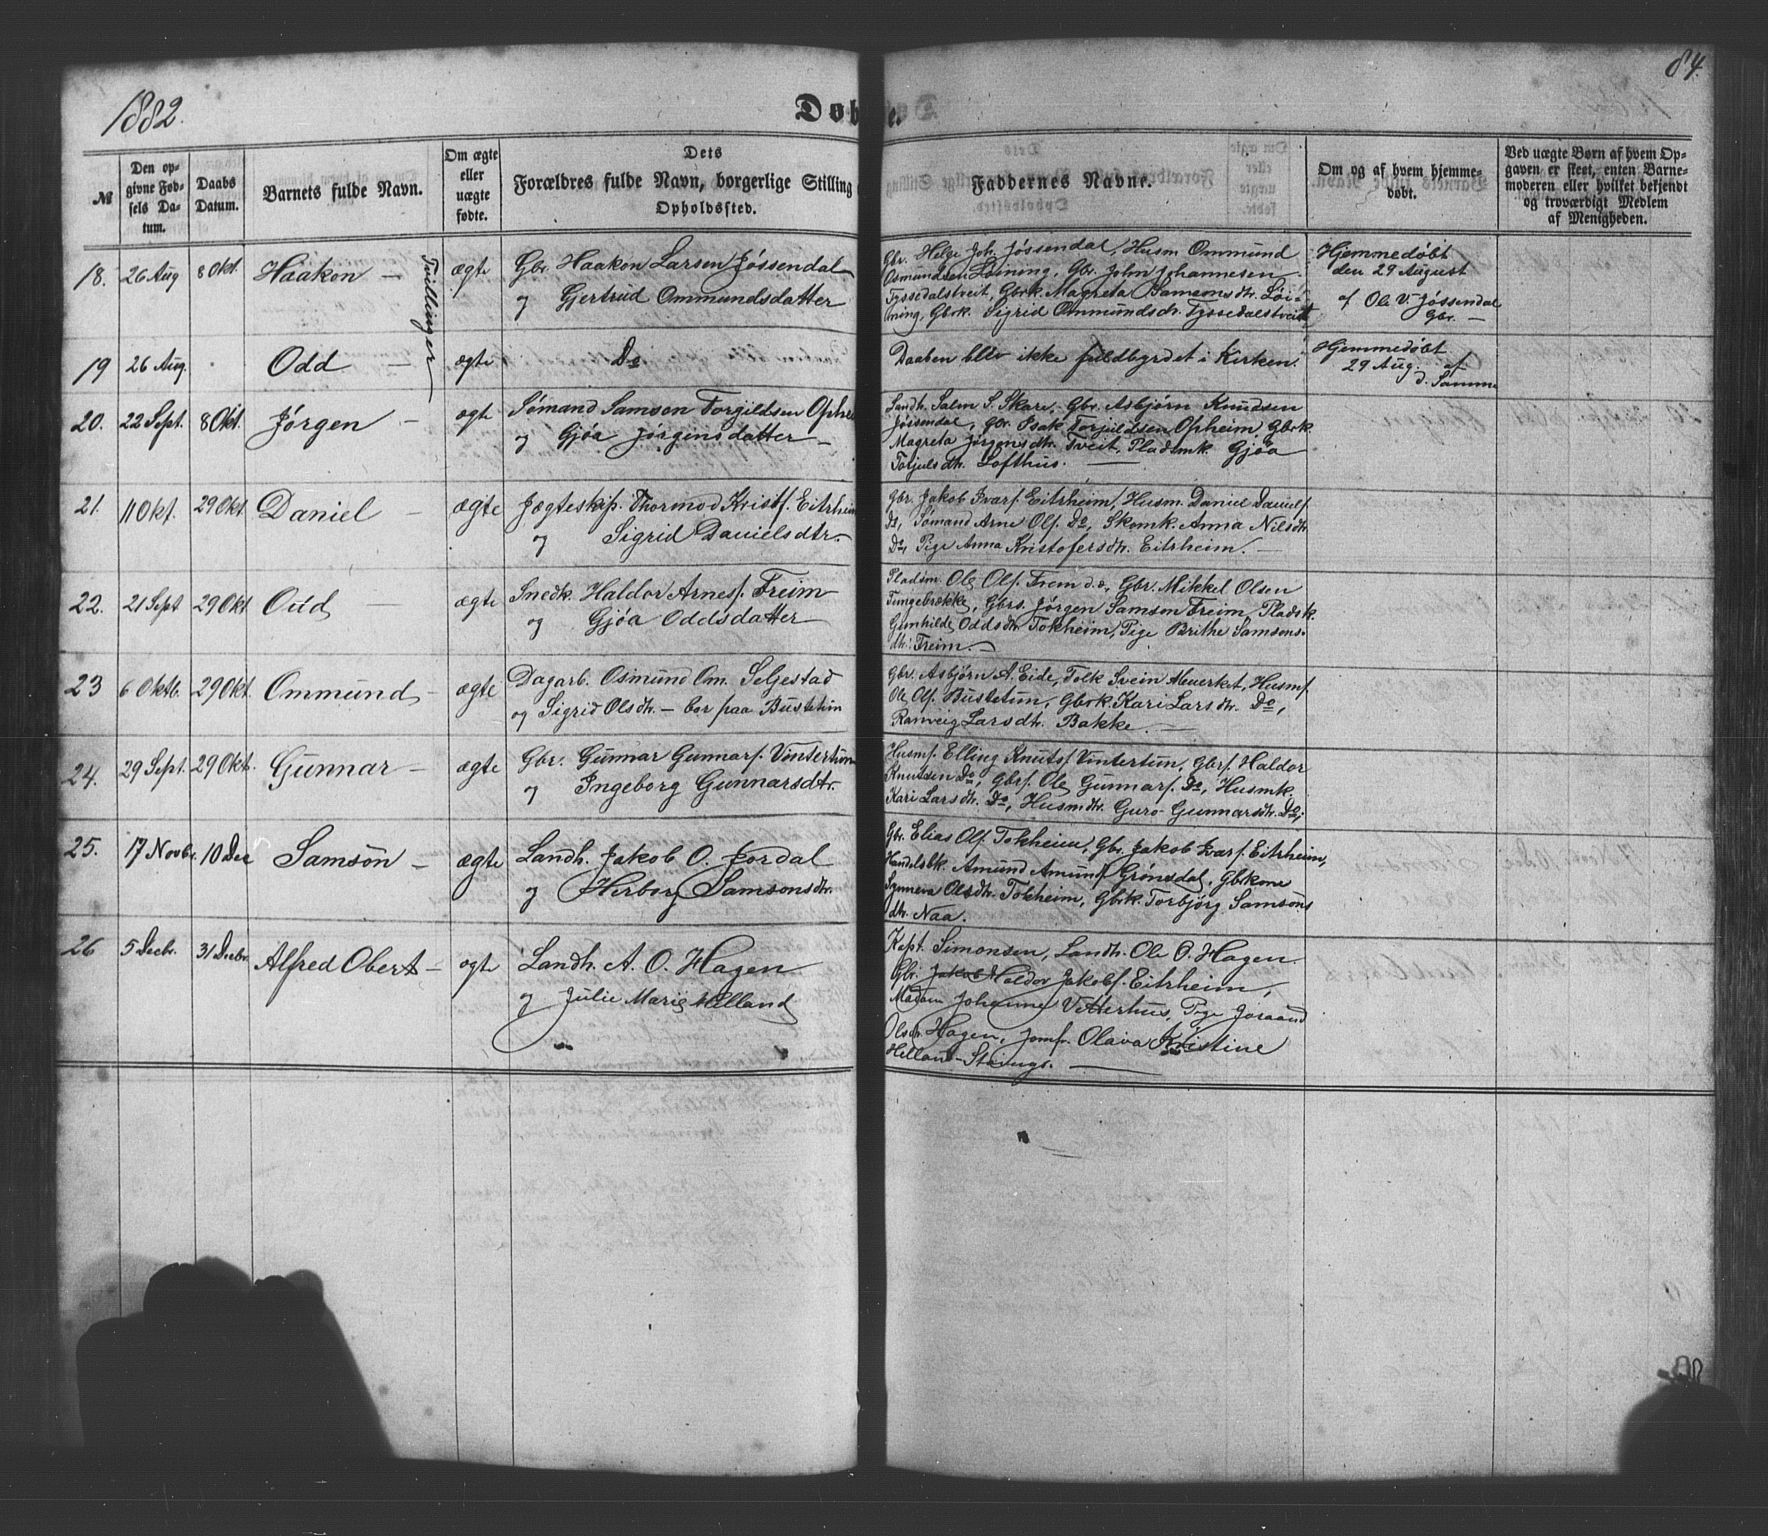 84.
1882.
Døbte.
№
Den op-
givne Fød-
sels Da-
tum.
Daabs
Datum.
Barnets fulde Navn.
Om ægte
eller
uægte
fødte.
Dets
Forældres fulde Navn, borgerlige Stilling
Opholdssted.
Faddernes Navne.
Om og af hvem hjemme-
døbt.
Ved uægte Børn af hvem Op-
gaven er skeet, enten Barne-
moderen eller hvilket bekjendt
og troværdigt Medlem
af Menigheden.
18. 26 Aug 8 Okt. Haakon — ægte
Tvillinger
Gbr. Haakon Larsen Jøssendal
og Gjertrud Ommundsdatter
Gbr. Helge Joh. Jøssendal, Husm Ommund
Osmundsen Løining, Gbr. John Johannesen
Tyssedalstveit, Gbrk. Magreta Samsonsdtr. Løi-
ning, Gbrk. Sigrid Ommundsdr. Tyssedalstveit
Hjemmedøbt
den 29 August
af Ole V. Jøssendal
Gbr. —
19 26 Aug. Odd — ægte
Do
Daaben blev ikke fuldbyrdet i Kirken.
Hjemmedøbt
29 Aug. af
d. Samme
20. 22 Sept. 8 Okt. Jørgen — ægte
Sømand Samson Torgildsen Ophei
og Gjøa Jørgensdatter —
Landh. Salm. S. Skare, Gbr. Asbjørn Knudsen
Jøssendal, Gbr. Isak Torjuldsen Opheim, Gbrk.
Magreta Jørgensdtr. Tveit, Pladsmk. Gjøa
Torjulsdtr. Lofthus. —
21. 11 Okt. 29 Okt. Daniel — ægte
Jægteskip. Thormod Kristf. Eitrheim
og Sigrid Danielsdtr. —
Gbr. Jakob Ivarf. Eitrheim, Husm. Daniel Danielf.
Do, Sømand Arne Olf. Do, Skomk. Anna Nilsdtr.
Do, Pige Anna Kristofersdtr. Eitrheim. —
22. 21 Sept 29 Okt Odd — ægte
Snedk. Haldor Arnesf. Freim
og Gjøa Oddsdatter
Pladsm. Ole Olf. Freim d.æ, Gbr. Mikkel Olsen
Tungebrække, Gbrs. Jørgen Samson Freim, Pladsk.
Gunhilde Oddsdtr. Tokheim, Pige Brithe Samsons-
dtr. Freim. —
23 6 Oktb. 29 Okt. Ommund — ægte
Dagarb. Osmund Om. Seljestad
og Sigrid Olsdtr. — bor paa Bustetun
Gbr. Asbjørn A. Eide, Tolk Svein Aluerket, Husmf.
Ole Olf. Bustetun, Gbrk. Kari Larsdtr. Do,
Ranveig Larsdtr. Bakke. —
24. 29 Sept. 29 Okt. Gunnar — ægte
Gbr. Gunnar Gunnarf. Vintertun
og Ingeborg Gunnarsdtr.
Husmf. Elling Knutsf. Vintertun, Gbrf. Haldor
Knutsen Do, Gbrf. Ole Gunnarf. Do, Husmk.
Kari Larsdtr. Do, Husmdtr. Guro Gunnarsdtr. Do,
25. 17 Novbr. 10 Dec Samson — ægte
Landh. Jakob O. Jordal
og Herborg Samsonsdtr.
Gbr. Elias Olf. Tokheim, Gbr. Jakob Ivarf. Eitrheim,
Handelsbk. Amund Amundf. Grønsdal, Gbrkone
Synneva Olsdtr. Tokheim, Gbrk. Torbjørg Samsons
dtr. Naa.
26 5 Decbr. 31 Decbr. Alfred Obert — ogte
Landh. A. O. Hagen
og Julie Marie Helland
Kapt. Simonsen, Landh. Ole O. Hagen
Gbr. Jakob Haldor Jakobf. Eitrheim,
Madam Johanne Vetterhus, Pige Joraand
Olsdr. Hagen, Jomf. Olava Kristine
Helland-Stavngr. —